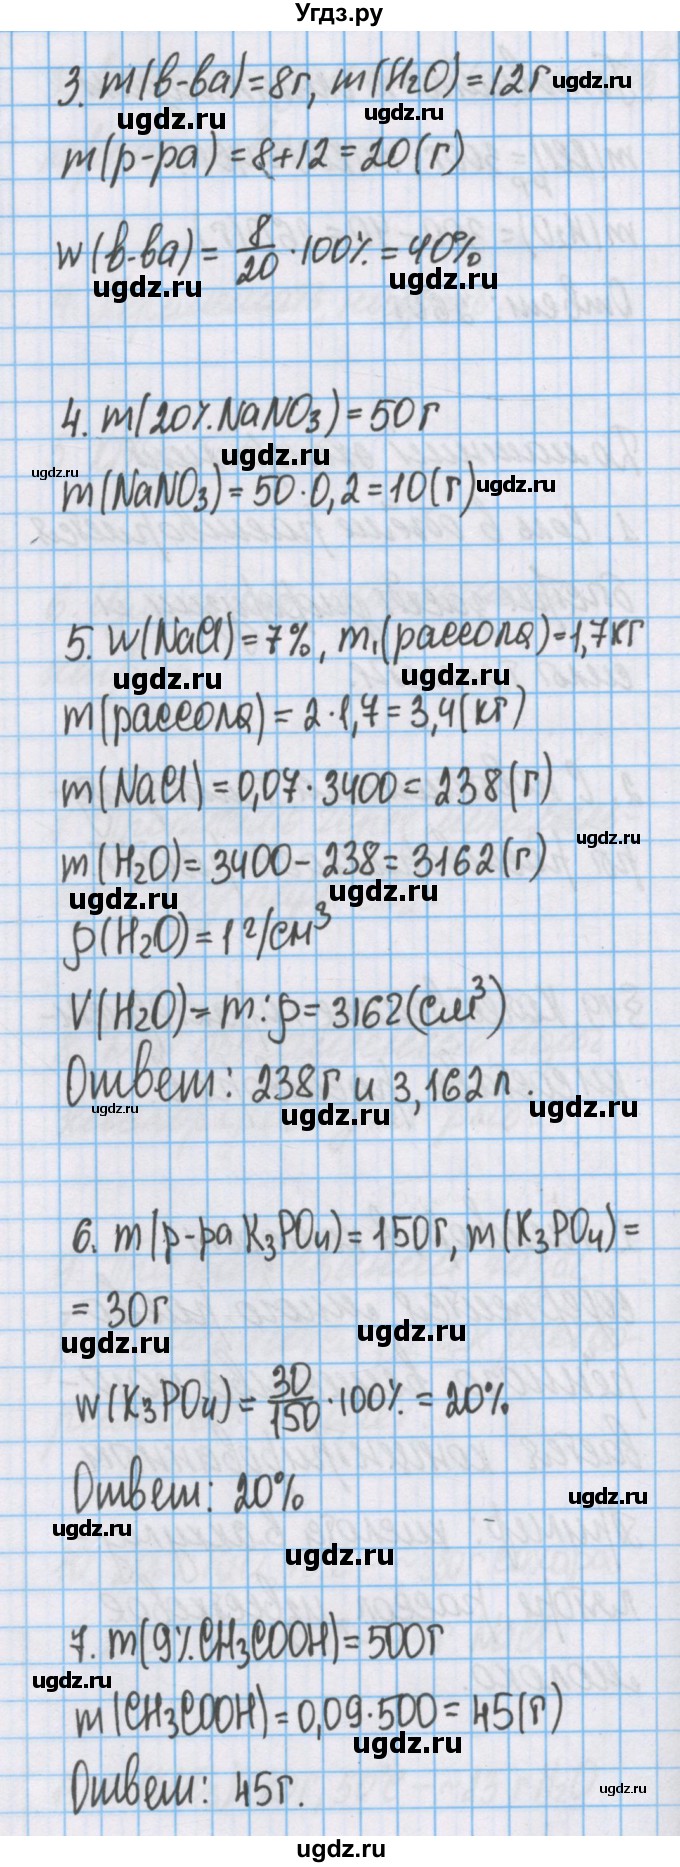 Угдз.ру
3. m(в-ва)=8г, m(H₂O)=12г
ugdz.ru
ugdz.ru
ugdz.ru
m(р-ра)=8+12=20(г)
w(в-ва)= 8/20 ·100%=40%
ugdz.ru
ugdz.ru
4. m(20%.NaNO₃)=50г
ugdz.ru
ugdz.ru
m(NaNO₃)=50·0,2=10(г)
ugdz.ru
5. w(NaCl)=7%, m₁(рассола)=1,7кг
ugdz.ru
ugdz.ru
m(рассола)=2·1,7=3,4(кг)
m(NaCl)=0,07·3400=238(г)
ugdz.ru
m(H₂O)=3400-238=3162(г)
ugdz.ru
ugdz.ru
ρ(H₂O)=1г/см³
V(H₂O)=m:ρ=3162(см³)
Ответ: 238г и 3,162л.
ugdz.ru
ugdz.ru
ugdz.ru
6. m(р-ра K₃PO₄)=150г, m(K₃PO₄)=
=30г
ugdz.ru
ugdz.ru
w(K₃PO₄)= 30/150 ·100%=20%
Ответ: 20%
ugdz.ru
ugdz.ru
ugdz.ru
7. m(9%.CH₃COOH)=500г
ugdz.ru
m(CH₃COOH)=0,09·500=45(г)
ugdz.ru
Ответ: 45г.
ugdz.ru
ugdz.ru